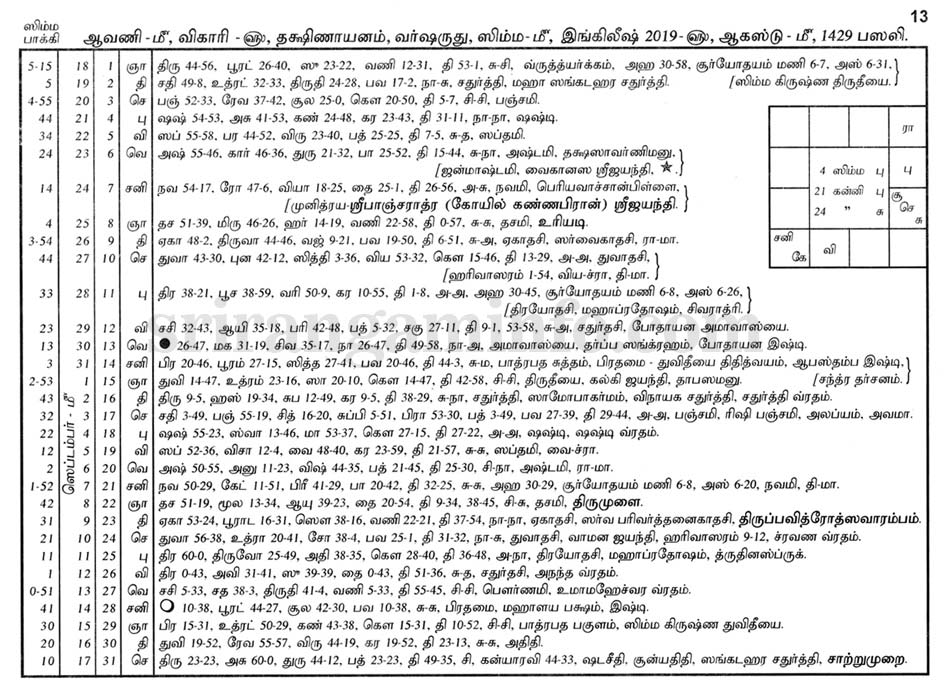 13
ஸிம்ம
பாக்கி
ஆவணி -மீ, விகாரி -ஹு, தக்ஷிணாயனம், வர்ஷருது, ஸிம்ம-மீ, இங்கிலீஷ் 2019-ஹு, ஆகஸ்டு - மீ, 1429 பஸலி.
5-15 18 1 ஞா திரு 44-56, பூரட் 26-40, ஸு 23-22, வணி 12-31, தி 53-1, சு-சி, வ்ருத்த்யர்க்கம், அஹ 30-58, சூர்யோதயம் மணி 6-7, அஸ் 6-31,
5 19 2 தி சதி 49-8, உத்ரட் 32-33, திருதி 24-28, பவ 17-2, நா-சு, சதுர்த்தி, மஹா ஸங்கடஹர சதுர்த்தி. [ஸிம்ம கிருஷ்ண திருதீயை.
4-55 20 3 செ பஞ் 52-33, ரேவ 37-42, சூல 25-0, கௌ 20-50, தி 5-7, சி-சி, பஞ்சமி.
44 21 4 பு ஷஷ் 54-53, அசு 41-53, கண் 24-48, கர 23-43, தி 31-11, நா-நா, ஷஷ்டி.
34 22 5 வி ஸப் 55-58, பர 44-52, விரு 23-40, பத் 25-25, தி 7-5, சு-த, ஸப்தமி.
24 23 6 வெ அஷ் 55-46, கார் 46-36, துரு 21-32, பா 25-52, தி 15-44, சு-நா, அஷ்டமி, தக்ஷஸாவர்ணிமனு,
[ஜன்மாஷ்டமி, வைகானஸ ஸ்ரீஜயந்தி, ★.
14 24 7 சனி நவ 54-17, ரோ 47-6, வியா 18-25, தை 25-1, தி 26-56, அ-சு, நவமி, பெரியவாச்சான்பிள்ளை,
[முனித்ரய-ஸ்ரீபாஞ்சராத்ர (கோயில் கண்ணபிரான்) ஸ்ரீஜயந்தி.
4 25 8 ஞா தச 51-39, மிரு 46-26, ஹர் 14-19, வணி 22-58, தி 0-57, சு-சு, தசமி, உரியடி.
3-54 26 9 தி ஏகா 48-2, திருவா 44-46, வஜ் 9-21, பவ 19-50, தி 6-51, சு-அ, ஏகாதசி, ஸர்வைகாதசி, ரா-மா.
44 27 10 செ துவா 43-30, புன 42-12, ஸித்தி 3-36, விய 53-32, கௌ 15-46, தி 13-29, அ-அ, துவாதசி,
[ஹரிவாஸரம் 1-54, விய-ச்ரா, தி-மா.
33 28 11 பு திர 38-21, பூச 38-59, வரி 50-9, கர 10-55, தி 1-8, அ-அ, அஹ 30-45, சூர்யோதயம் மணி 6-8, அஸ் 6-26,
[திரயோதசி, மஹாப்ரதோஷம், சிவராத்ரி.
23 29 12 வி சசி 32-43, ஆயி 35-18, பரி 42-48, பத் 5-32, சகு 27-11, தி 9-1, 53-58, சு-அ, சதுர்தசி, போதாயன அமாவாஸ்யை.
13 30 13 வெ ● 26-47, மக 31-19, சிவ 35-17, நா 26-47, தி 49-58, நா-அ, அமாவாஸ்யை, தர்ப்ப ஸங்க்ரஹம், போதாயன இஷ்டி.
3 31 14 சனி பிர 20-46, பூரம் 27-15, ஸித்த 27-41, பவ 20-46, தி 44-3, சு-ம, பாத்ரபத சுத்தம், பிரதமை - துவிதீயை திதித்வயம், ஆபஸ்தம்ப இஷ்டி,
2-53 1 15 ஞா துவி 14-47, உத்ரம் 23-16, ஸா 20-10, கௌ 14-47, தி 42-58, சி-சி, திருதீயை, கல்கி ஜயந்தி, தாபஸமனு. [சந்த்ர தர்சனம்.
ஸெப்டம்பர் - மீ
43 2 16 தி திரு 9-5, ஹஸ் 19-34, சுப 12-49, கர 9-5, தி 38-29, சு-நா, சதுர்த்தி, ஸாமோபாகர்மம், விநாயக சதுர்த்தி, சதுர்த்தி வ்ரதம்.
32 3 17 செ சதி 3-49, பஞ் 55-19, சித் 16-20, சுப்பி 5-51, பிரா 53-30, பத் 3-49, பவ 27-39, தி 29-44, அ-அ, பஞ்சமி, ரிஷி பஞ்சமி, அலப்யம், அவமா.
22 4 18 பு ஷஷ் 55-23, ஸ்வா 13-46, மா 53-37, கௌ 27-15, தி 27-22, அ-அ, ஷஷ்டி, ஷஷ்டி வ்ரதம்.
12 5 19 வி ஸப் 52-36, விசா 12-4, வை 48-40, கர 23-59, தி 21-57, சு-சு, ஸப்தமி, வை-ச்ரா.
2 6 20 வெ அஷ் 50-55, அனு 11-23, விஷ் 44-35, பத் 21-45, தி 25-30, சி-நா, அஷ்டமி, ரா-மா.
1-52 7 21 சனி நவ 50-29, கேட் 11-51, பிரீ 41-29, பா 20-42, தி 32-25, சு-சு, அஹ 30-29, சூர்யோதயம் மணி 6-8, அஸ் 6-20, நவமி, தி-மா.
42 8 22 ஞா தச 51-19, மூல 13-34, ஆயு 39-23, தை 20-54, தி 9-34, 38-45, சி-சு, தசமி, திருமுளை.
31 9 23 தி ஏகா 53-24, பூராட 16-31, ஸௌ 38-16, வணி 22-21, தி 37-54, நா-நா, ஏகாதசி, ஸர்வ பரிவர்த்தனைகாதசி, திருப்பவித்ரோத்ஸவாரம்பம்.
21 10 24 செ துவா 56-38, உத்ரா 20-41, சோ 38-4, பவ 25-1, தி 31-32, நா-சு, துவாதசி, வாமன ஜயந்தி, ஹரிவாஸரம் 9-12, ச்ரவண வ்ரதம்.
11 11 25 பு திர 60-0, திருவோ 25-49, அதி 38-35, கௌ 28-40, தி 36-48, அ-நா, திரயோதசி, மஹாப்ரதோஷம், த்ருதினஸ்ப்ருக்.
1 12 26 வி திர 0-43, அவி 31-41, ஸு 39-39, தை 0-43, தி 51-36, சு-த, சதுர்தசி, அநந்த வ்ரதம்.
0-51 13 27 வெ சசி 5-33, சத 38-3, திருதி 41-4, வணி 5-33, தி 55-45, சி-சி, பௌர்ணமி, உமாமஹேச்வர வ்ரதம்.
41 14 28 சனி ○ 10-38, பூரட் 44-27, சூல 42-30, பவ 10-38, சு-சு, பிரதமை, மஹாளய பக்ஷம், இஷ்டி.
30 15 29 ஞா பிர 15-31, உத்ரட் 50-29, கண் 43-38, கௌ 15-31, தி 10-52, சி-சி, பாத்ரபத பகுளம், ஸிம்ம கிருஷ்ண துவிதீயை.
20 16 30 தி துவி 19-52, ரேவ 55-57, விரு 44-19, கர 19-52, தி 23-13, சு-சு, அதிதி.
10 17 31 செ திரு 23-23, அசு 60-0, துரு 44-12, பத் 23-23, தி 49-35, சி, கன்யாரவி 44-33, ஷடசீதி, சூன்யதிதி, ஸங்கடஹர சதுர்த்தி, சாற்றுமுறை.
ரா
4 ஸிம்ம பு
21 கன்னி பு
24 " சு
பு
சூ
செ
சு
சனி
கே
வி
srirangaminfo.com